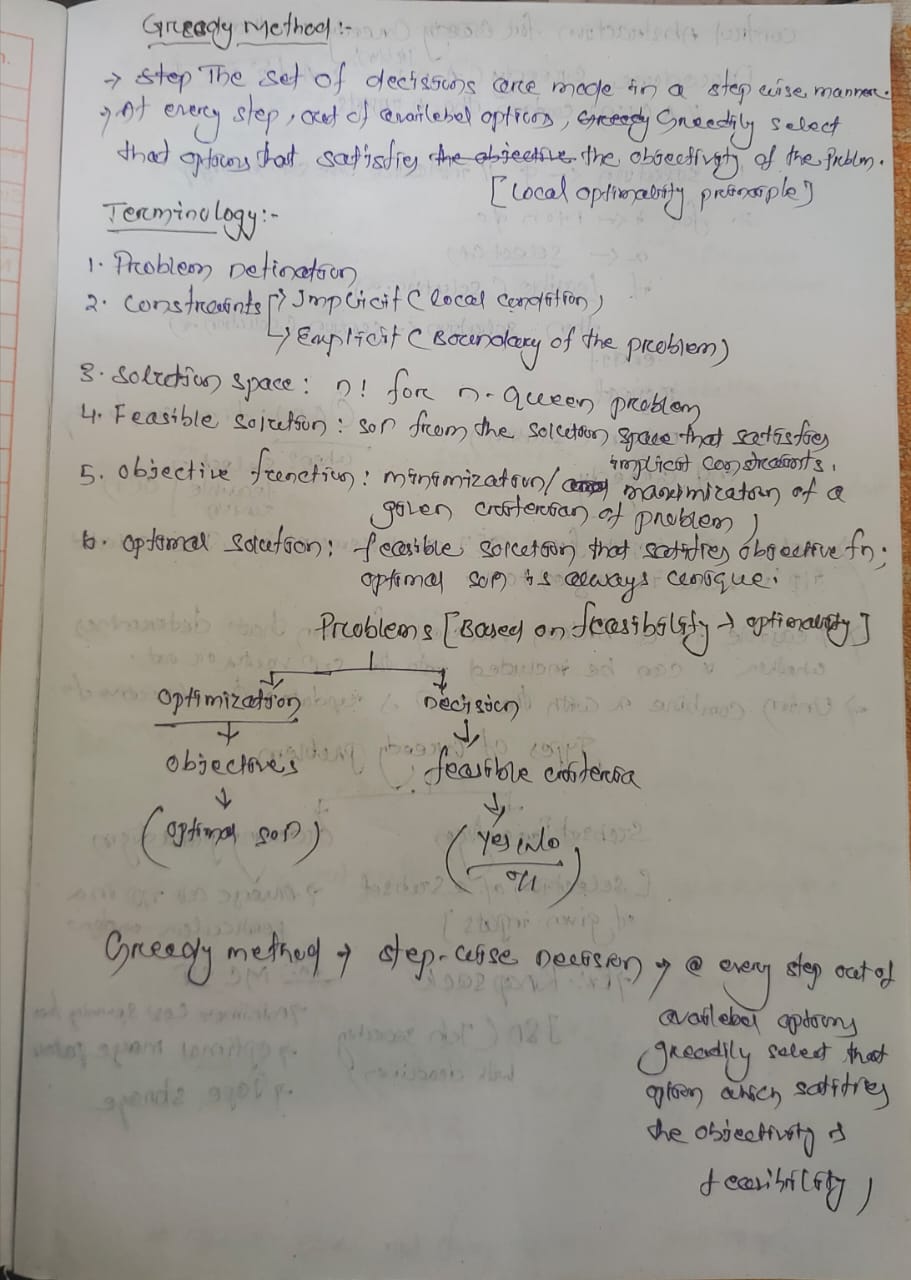 Greedy Method :-
→ step The set of decissions are made in a step wise manner.
→ At every step, out of availebel options, Greedy Greedily select
that options that satisfies the objective the objectivity of the Problm.
[local optimality principle]
Terminology :-
1. Problem Defination
2. Constraints → Implicit (local condition)
→ Explicit (Boundary of the problem)
3. Solution space : n! for n-queen problem
4. Feasible solution : soln from the solution space that satisfies
implicit constraints.
5. Objective function : minimization/ maximization of a
given criterian of problem
6. Optimal solution : feasible solution that satisfies objective fn;
optimal soln is always unique.
Problems [Based on feasibility → optimality]
Optimization Decision
Objectives feasible criteria
(Optimal soln) (Yes/No
0/1)
Greedy method → step-wise Decision → @ every step out of
availebel options
greedily select that
option which satisfies
the objectivity &
feasibility